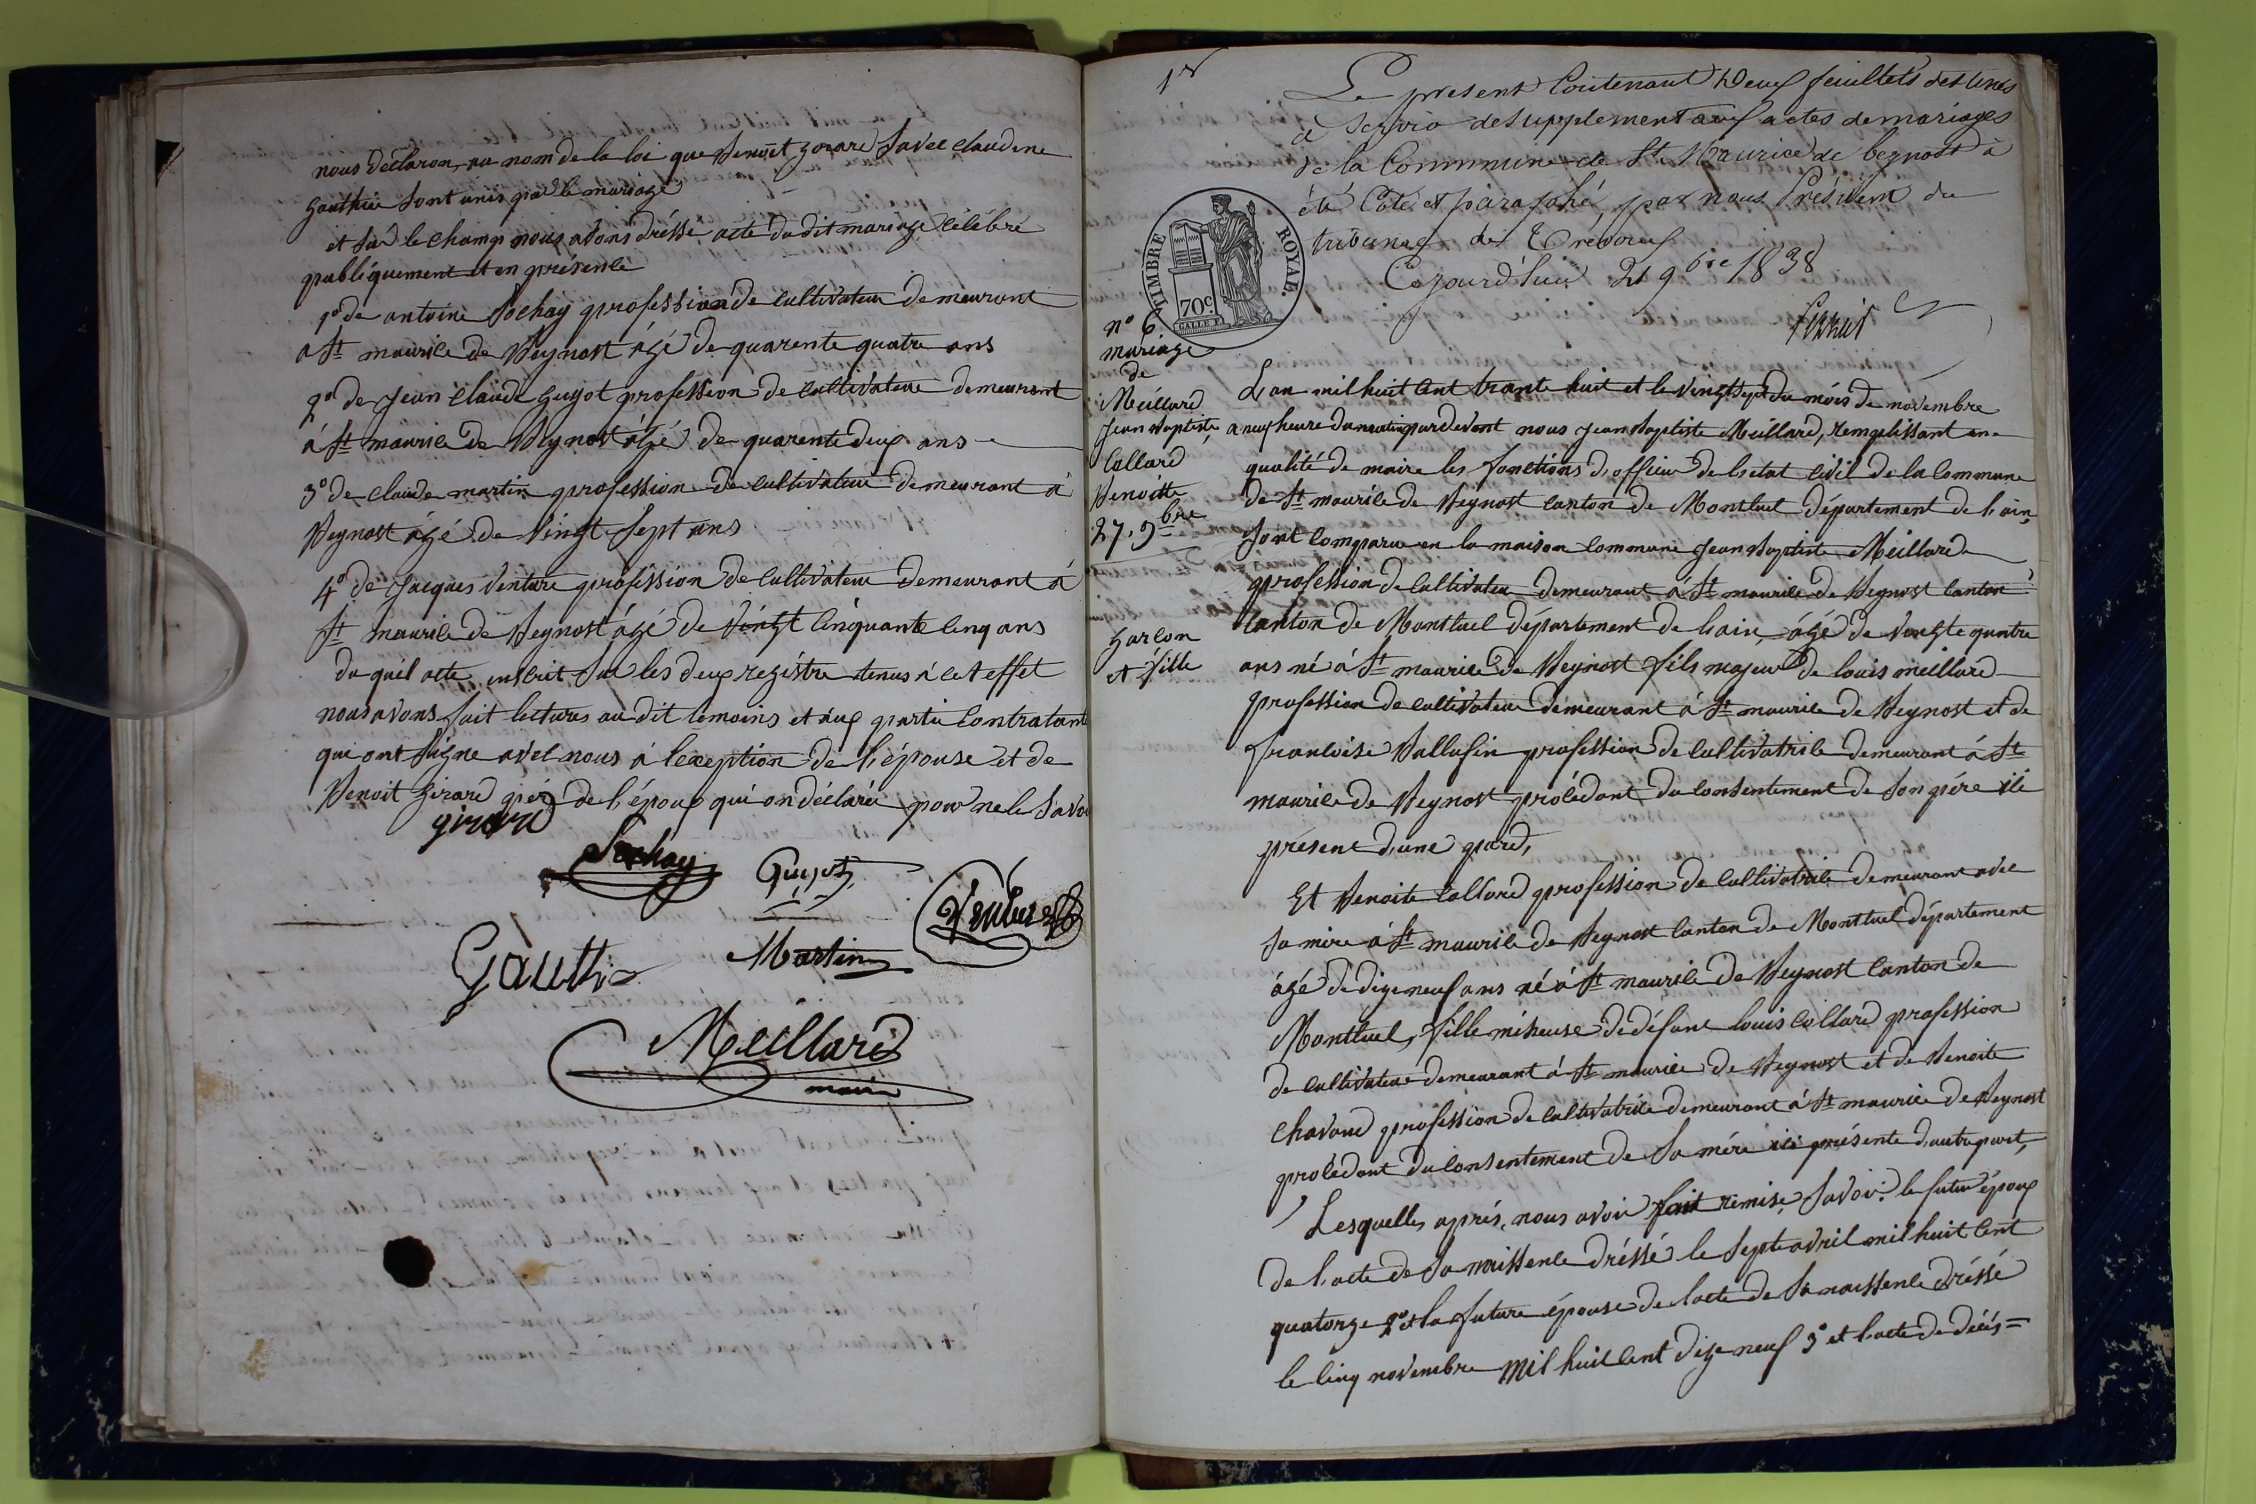 nous déclaron, au nom de la loi que Benoit girard Savec claudine
gauthier Sont unis par le mariage
et Sur le champ nous avons dréssé acte du dit mariage célébré
publiquement et en présence
1º de antoine Sochay profession de cultivateur demeurant
a St maurice de Beynost âgé de quarente quatre ans
2º de jean claude guyot profession de cultivateur demeurant
á St maurice de Beynost âgé de quarente deux ans
3º de claude martin profession de cultivateur demeurant á
Beynost âgé de vingt Sept ans
4º de Jacques venture profession de cultivateur demeurant á
St maurice de Beynost âgé de vingt cinquante cinq ans
du quel acte inscrit Sur les deux registre tenus á cet effet
nous avons fait lectures au dit temoins et aux partie contratant
qui ont Signe avec nous á lexception de l'épouse et de
Benoit girard pére de l'époux qui on déclaré pour ne le Savoi
girard
Sochay
Guyot
Venture
Gauthie
Martin
Meillard
maire
1r
Le present Contenant Deux feuillets destinés
a Servir de Supplement aux actes de mariages
de la Commune de St Maurice de beynost à
été Coté et paraphé, par nous Président du
tribunal de Trévoux
Cejourd'hui 21 9bre 1838
TIMBRE ROYAL.
70c.
nº 6.
mariage
de
Meillard
Jean Baptiste,
Collard
Benoitte
27. 9bre
garcon
et fille
L'an mil huit cent trante huit et le vingt Sept du mois de novembre
a neuf heure du matin par devant nous jean Baptiste Meillard, remplissant en
qualité de maire les fonctions d'officier de l'etat civil de la commune
de St maurice de Beynost canton de Montluel département de l'ain,
Sont comparu en la maison commune jean Baptiste Meillard
profession de cultivateur demeurant á St maurice de Beynost canton
canton de Montluel département de l'ain, âgé de vingte quatre
ans né á St maurice de Beynost fils majeur de louis meillard
profession de cultivateur demeurant á St maurice de Beynost et de
francoise Ballufin profession de cultivatrice demeurant á St
maurice de Beynost procédant du consentement de Son pére ici
présent d'une pard,
Et Benoite collard profession de cultivatrice demeurant avec
Sa mére á St maurice de Beynost canton de Montluel département
âgé de dixe neuf ans né á St maurice de Beynost canton de
Montluel, fille mineuse de défunt louis collard profession
de cultivateur demeurant á St maurice de Beynost et de Benoite
chavand profession de cultivatrice demeurant á St maurice de Beynost
procédant du consentement de Sa mére ici présente d'autre part,
Lesquelles aprés, nous avoir fait remise, Savoir: le futur époux
de l'acte de Sa naissence dréssé le Septe avril mil huit cent
quatorze 2º et la future épouse de l'acte de Sa naissence dréssé
le cinq novembre mil huit cent dixe neuf 3º et l'acte de décés =